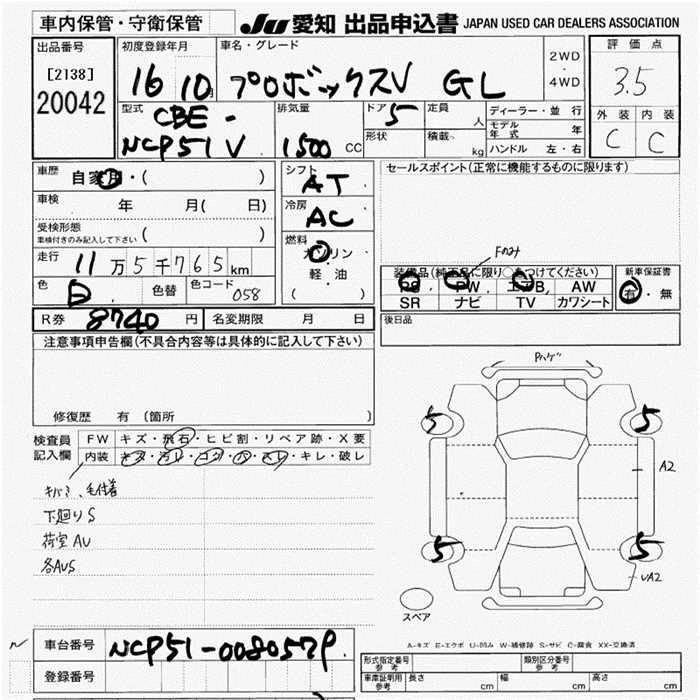 車内保管・守衛保管 JU 愛知 出品申込書 JAPAN USED CAR DEALERS ASSOCIATION
出品番号 初度登録年月 車名・グレード 評価点
[2138] 16 10 プロボックスV GL 2WD・4WD 3.5
20042 型式 排気量 ドア 5 定員 人 ディーラー・並行 外装 内装
CBE- モデル年式 年 C C
NCP51V 1500 CC 形状 積載 kg ハンドル 左・右
車歴 自家用・( ) シフト AT セールスポイント(正常に機能するものに限ります)
車検 年 月( 日) 冷房 AC
受検形態 ( )
車検付きのみ記入して下さい
燃料 ガソリン
軽・油
( )
走行 11万5千765km
Fのみ
装備品(純正品に限り○をつけてください) 新車保証書
色 白 色替 色コード 058 PS PW エアB AW 有・無
SR ナビ TV カワシート
R券 8740 円 名変期限 月 日 後日品
注意事項申告欄(不具合内容等は具体的に記入して下さい)
修復歴 有 (箇所 )
検査員記入欄 FW キズ・飛石・ヒビ割・リペア跡・X要
内装 キズ・汚レ・コゲ・穴・スレ・キレ・破レ
下廻りS
荷室AU
各AUS
5 5
A2
5 5
UA2
スペア
A-キズ E-エクボ U-凹み W-補修跡 S-サビ C-腐食 XX-交換済
車台番号 NCP51-0080579
登録番号
形式指定番号 参考 類別区分番号 参考
車庫証明用 参考 長さ cm 幅 cm 高さ cm